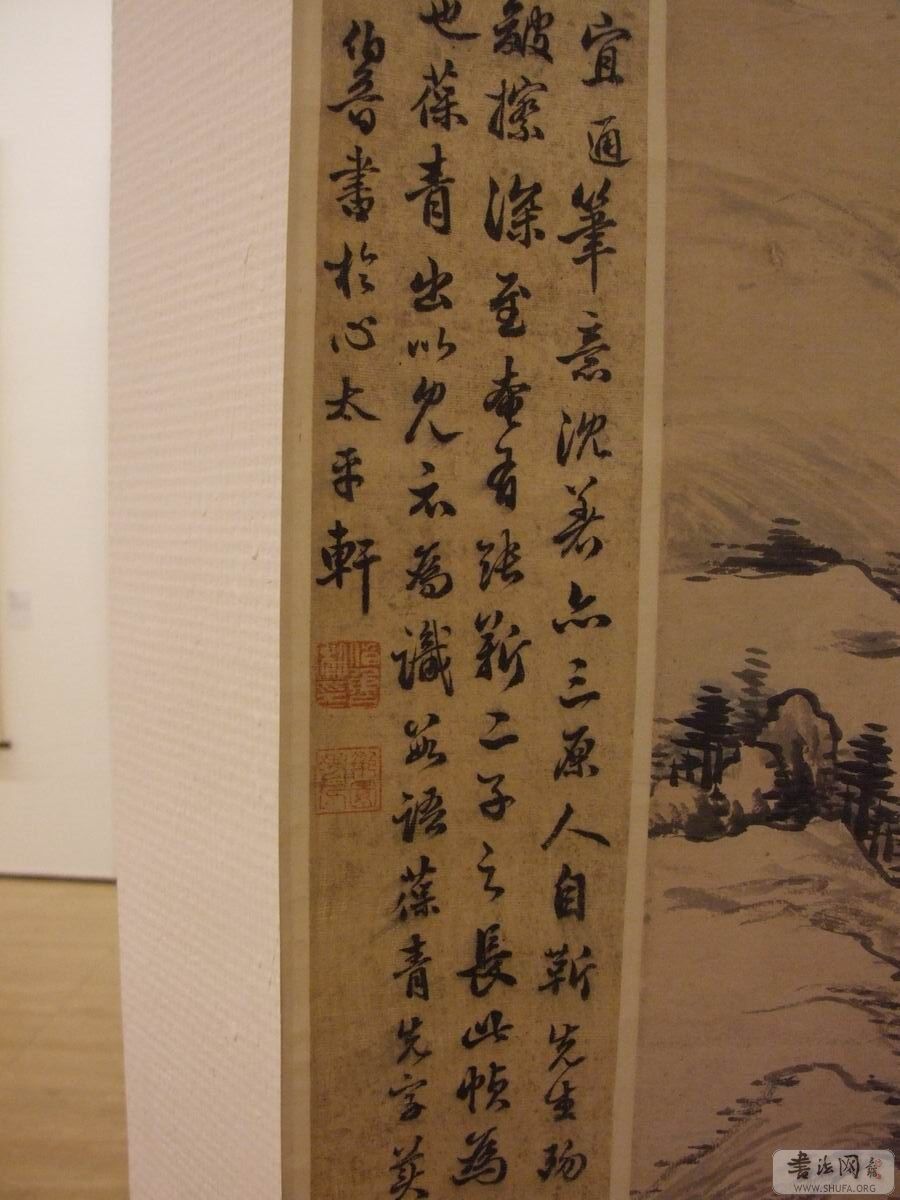 宜通筆意沈著亦三原人自靳先生殁
皴擦深至奄有張靳二子之長此幀為
也葆青出以見示為識數語葆青先字英
伯魯書於心太平軒
書法网
WWW.SHUFA.ORG